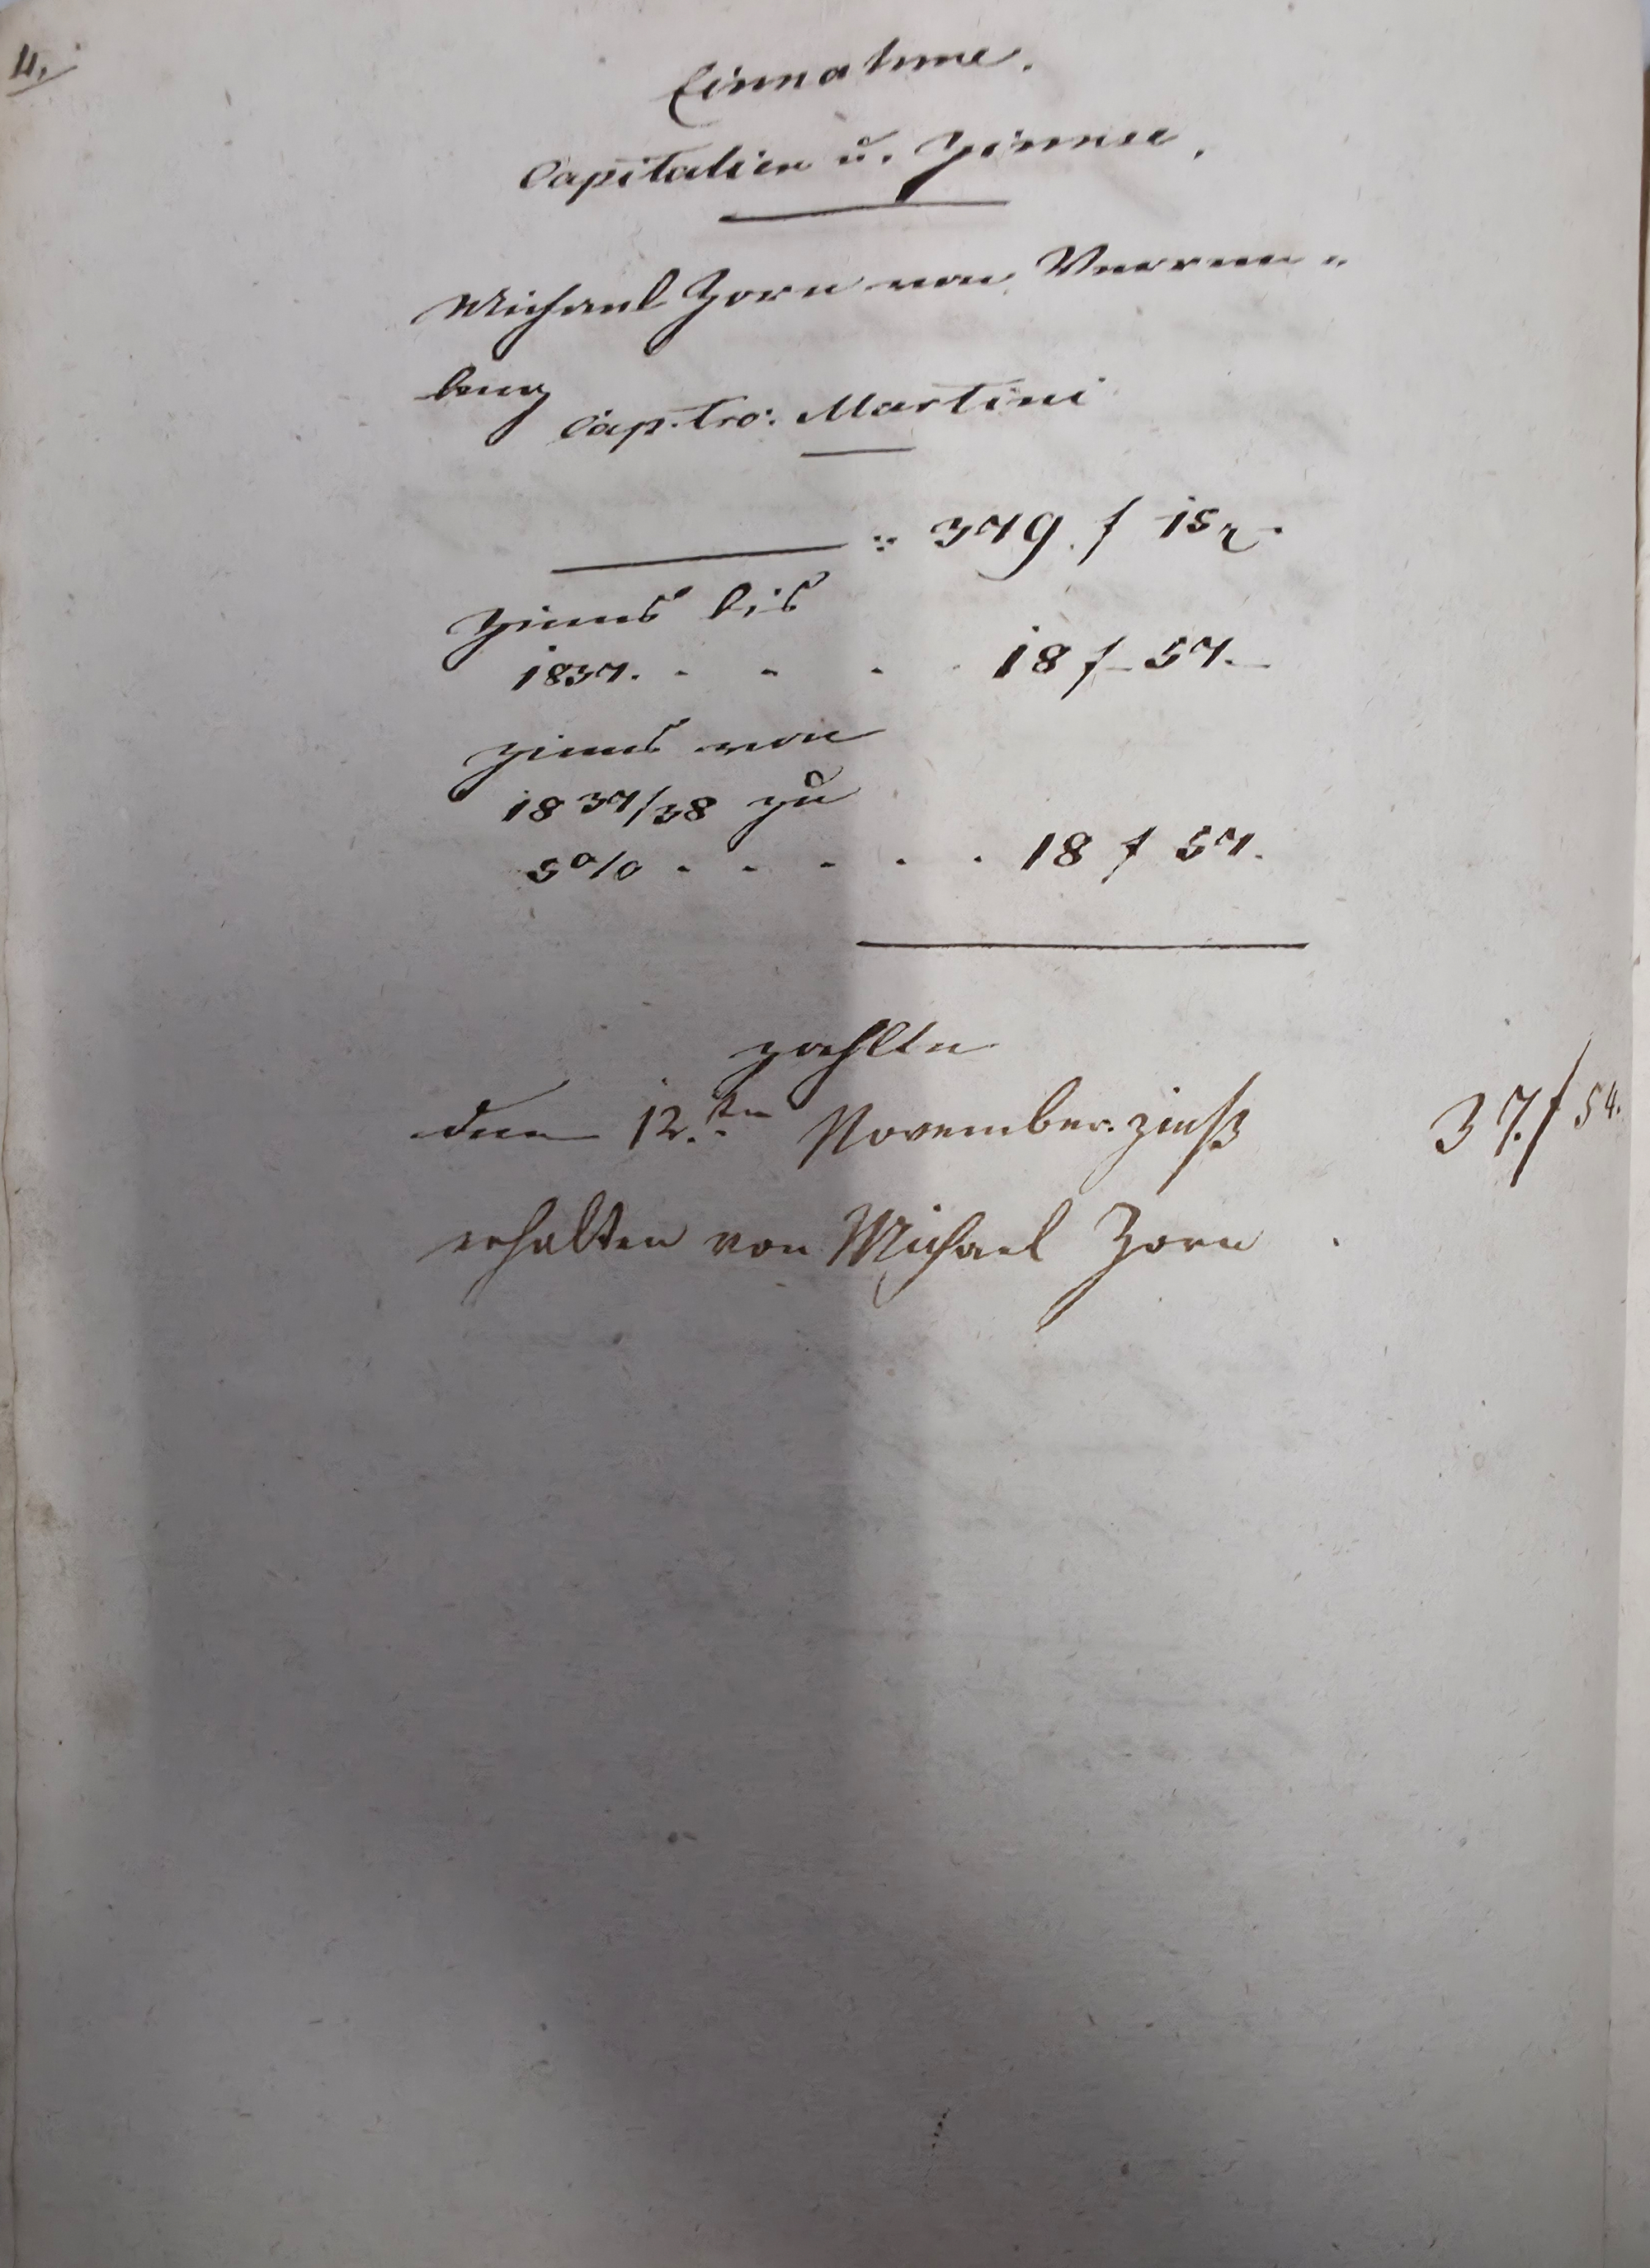 4.
Einnahme.
Capitalien ŭ. Zinnse.
Michael Zorn von Verren=
berg
Cap. tro: Martini
379. f 15 x.
Zinns bis
1837. . . . 18 f 57.
Zinns von
1837/38 zŭ
5% . . . . . 18 f 57.
zahlte
den 12.ten November. Zinß 37.f 54.
erhalten von Michael Zorn .